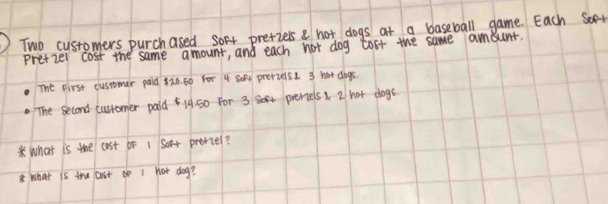 ) Two customers purchased soft pretzels & hot dogs at a baseball game. Each soft
pretzel cost the same amount, and each hot dog cost the same amount.
• The first customer paid $20.50 for 4 soft pretzels & 3 hot dogs.
• The second customer paid $14.50 for 3 soft pretzels & 2 hot dogs
* what is the cost of 1 soft pretzel?
* what is the cost of 1 hot dog?